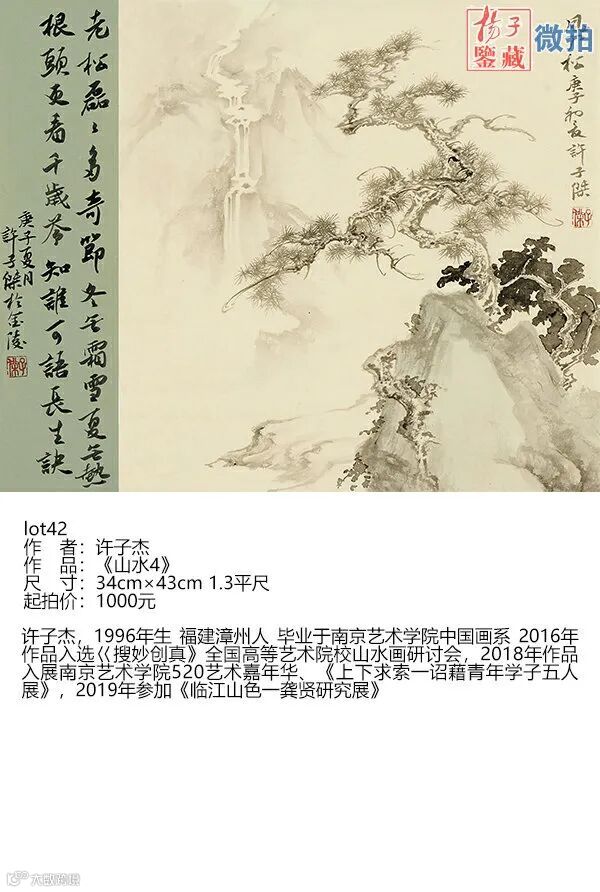 老松磊磊多奇節冬無霜雪夏無熱
根頭更看千歲苓知誰可語長生訣
庚子夏月
許子傑於金陵
松庚子初夏許子傑
揚子
鑒藏
微拍
lot42
作 者：许子杰
作 品：《山水4》
尺 寸：34cm×43cm 1.3平尺
起拍价：1000元
许子杰，1996年生 福建漳州人 毕业于南京艺术学院中国画系 2016年
作品入选《搜妙创真》全国高等艺术院校山水画研讨会，2018年作品
入展南京艺术学院520艺术嘉年华、《上下求索一诏藉青年学子五人
展》，2019年参加《临江山色一龚贤研究展》
大数跨境